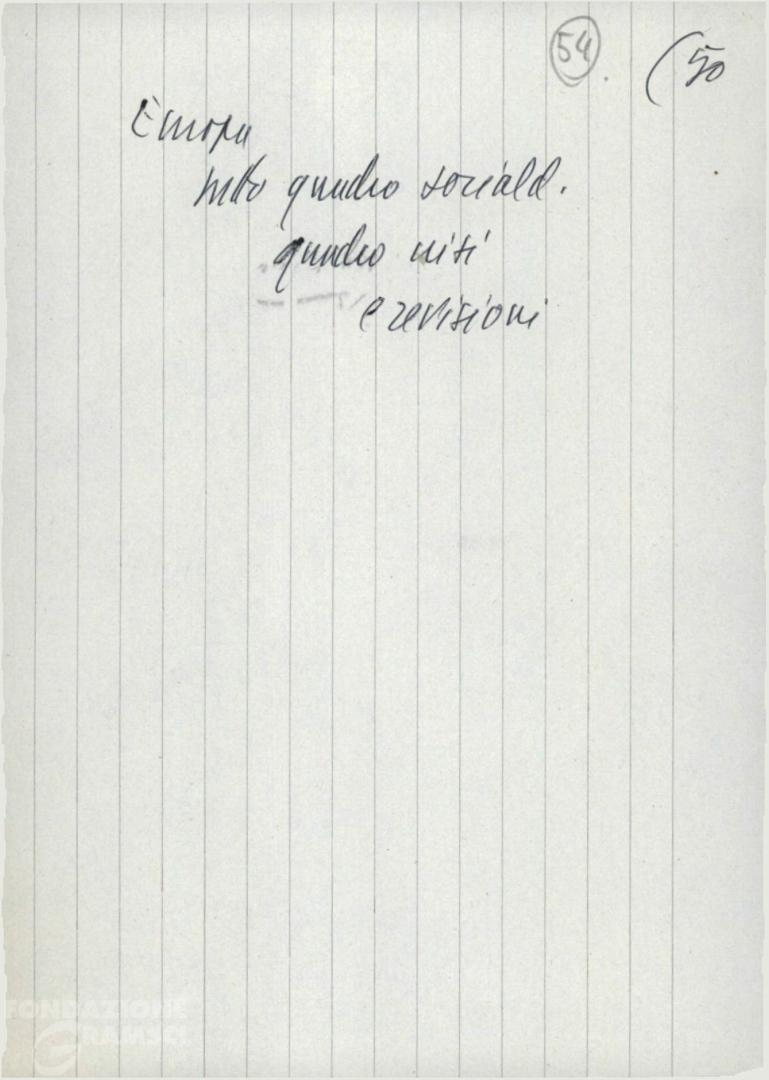 54
(50
Europa
tutto quadro sociald.
quadro crisi
e revisioni
FONDAZIONE
GRAMSCI